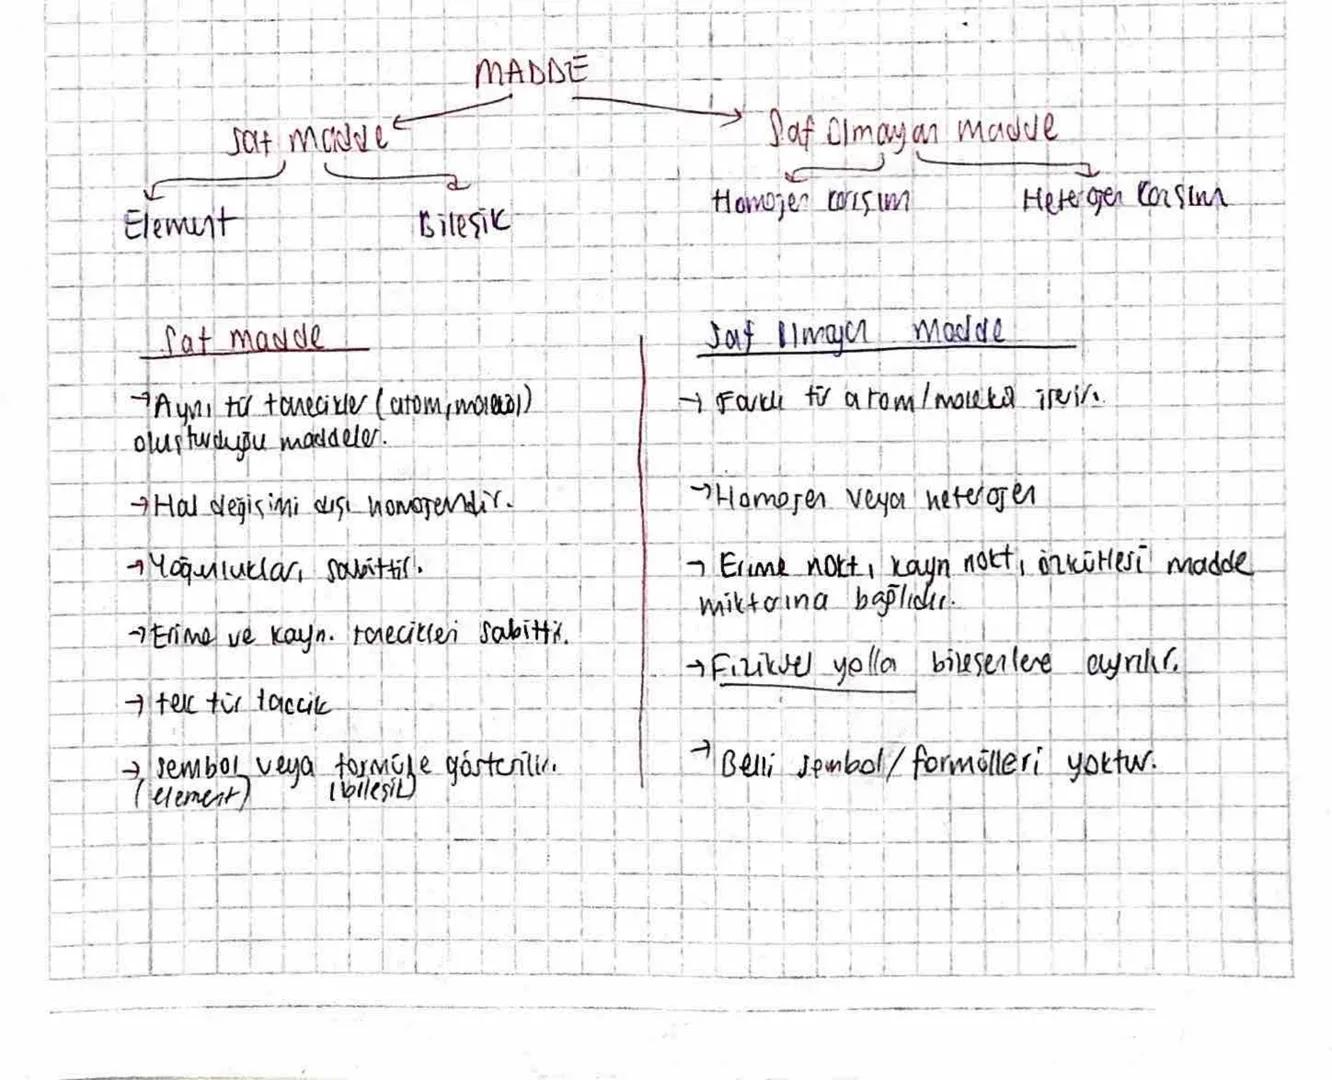 MADDE
Saf madde
Saf Olmayan madde
Element
Bileşik
Homojen karışım
Heterojen karışım
Saf madde
→Aynı tür tanecikler (atom, molekül)
oluşturduğu maddeler.
→Hal değişimi dışı homojendir.
→Yoğunlukları sabittir.
→Erime ve kayn. tanecikleri sabittir.
→ tek tür
→ sembol veya formülle gösterilir.
(element) (bileşik)
Saf Olmayan Madde
→ Farklı tür atom/molekül içerir.
→Homojen veya heterojen
→ Erime nokt, kayn nokt, özkütlesi madde
miktarına bağlıdır.
→Fiziksel yolla bileşenlere ayrılır.
→ Belli sembol/formülleri yoktur.